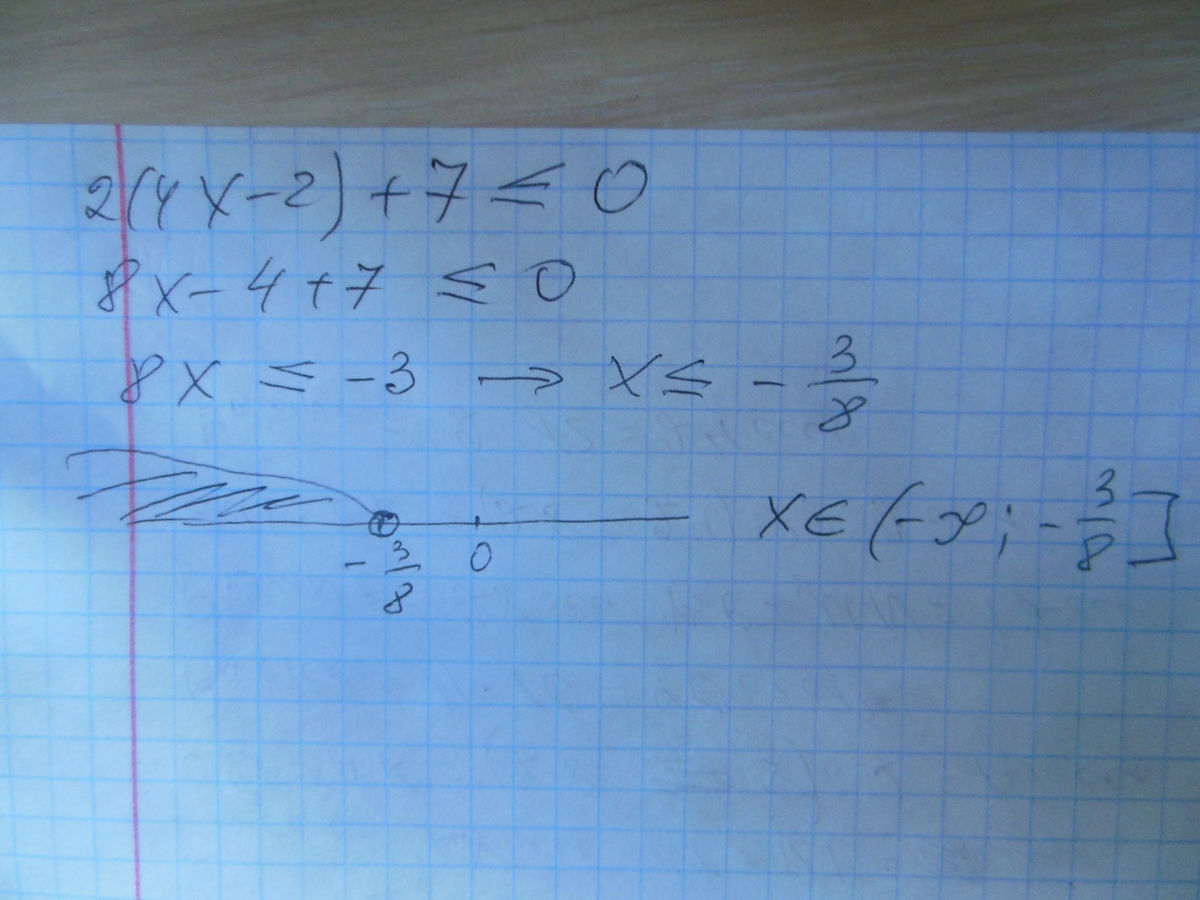 2(4x-2)+7 ≤ 0
8x-4+7 ≤ 0
8x ≤ -3 → x ≤ -3/8
-3/8 0
x ∈ (-∞; -3/8]